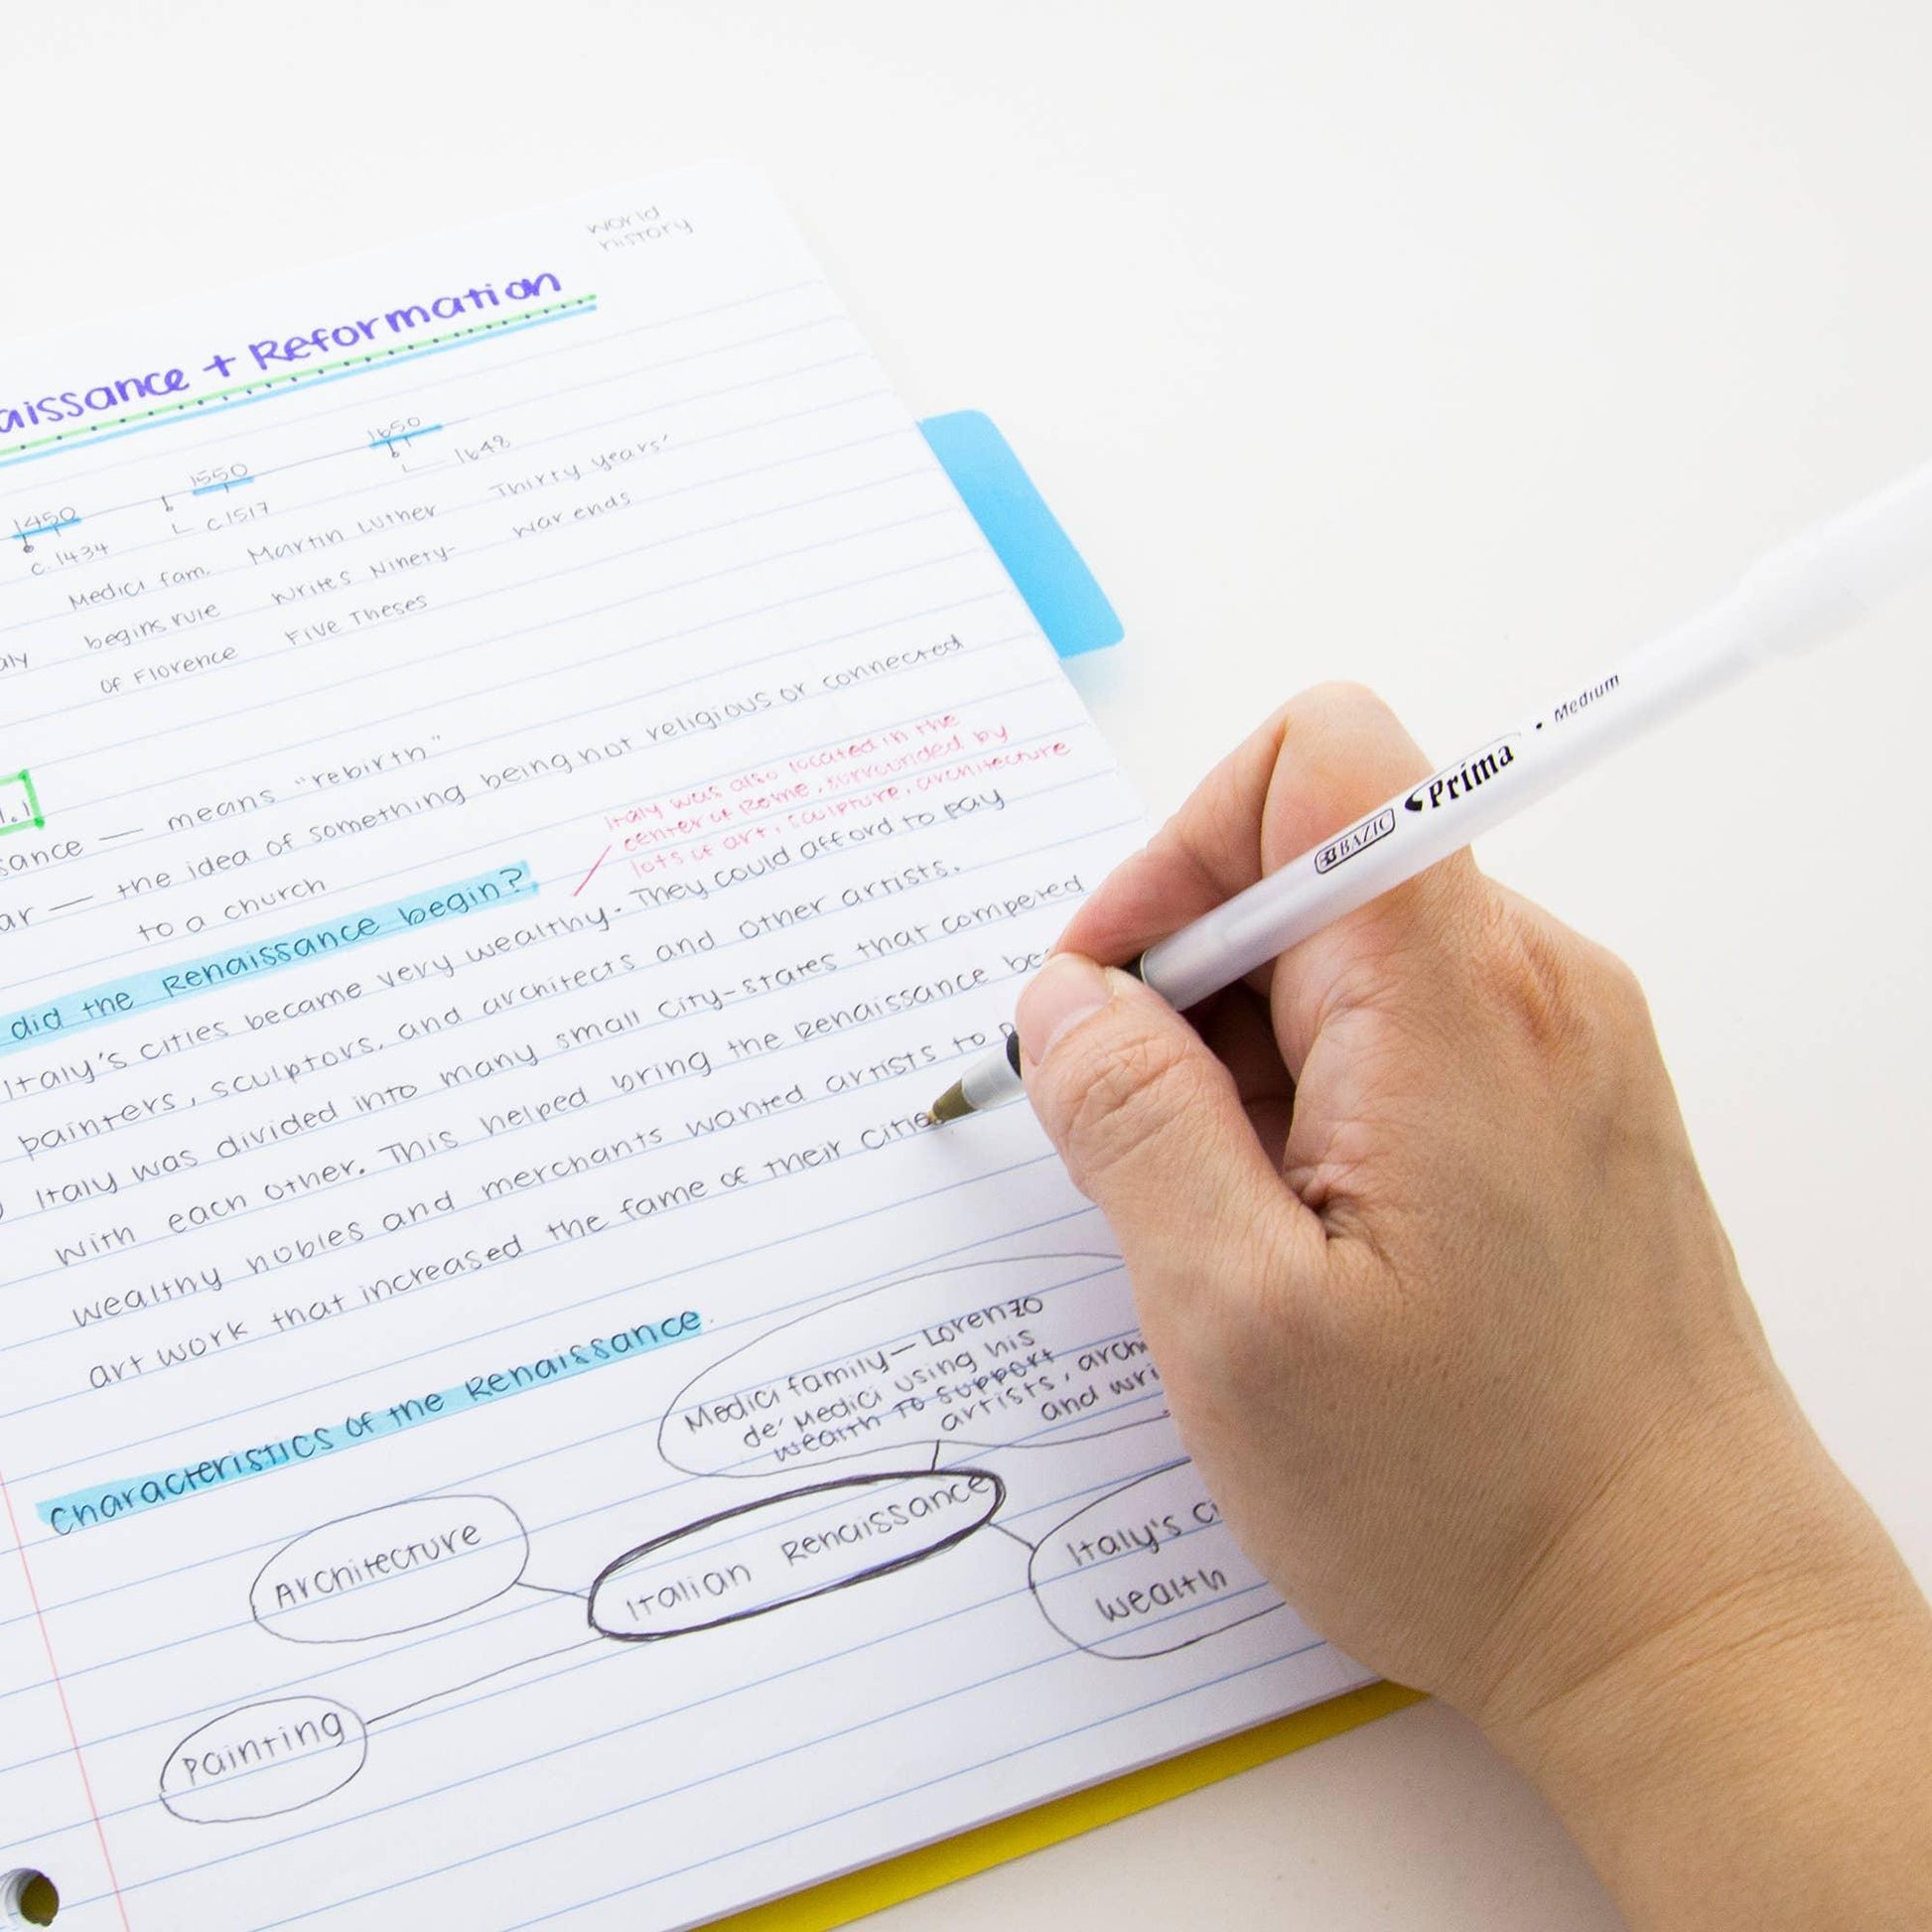 world
history
aissance + Reformation
1450
1550
1650
c.1434
c1517
1648
Medici fam.
begins rule
of Florence
Martin Luther
writes Ninety-
Five Theses
Thirty years'
war ends
aly
1.1
sance — means "rebirth"
ar — the idea of something being not religious or connected
to a church
Italy was also located in the
center of Rome, surrounded by
lots of art, sculpture, architecture
did the Renaissance begin?
Italy's cities became very wealthy. They could afford to pay
painters, sculptors, and architects and other artists.
Italy was divided into many small city-states that competed
with each other. This helped bring the Renaissance be
wealthy nobles and merchants wanted artists to p
art work that increased the fame of their citie
Characteristics of the Renaissance
Medici family — Lorenzo
de' Medici using his
wealth to support
artists, archi
and wri
Architecture
Italian Renaissance
Italy's ci
wealth
Painting
BAZIC Prima • Medium